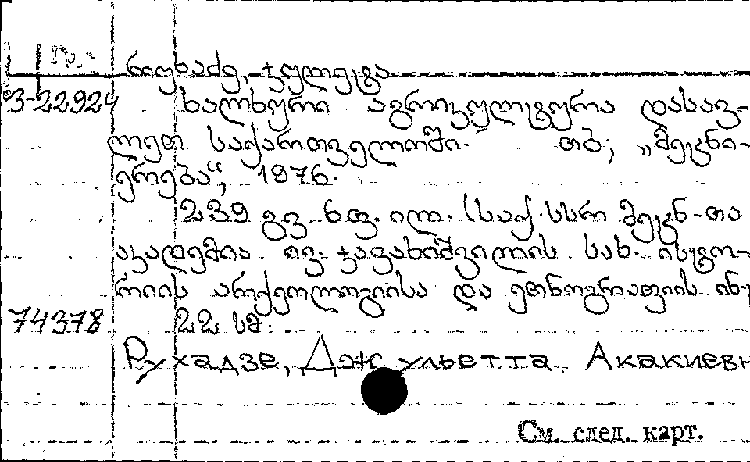 რუხაძე, ჯულიეტა
3-22924 ხალხური აგრიკულტურა დასავ-
ლეთ საქართველოში. თბ., „მეცნი-
ერება“, 1976.
239 გვ. 6 ფ. ილ. (საქ. სსრ მეცნ-თა
აკადემია ივ. ჯავახიშვილის სახ. ისტო-
რიის არქეოლოგიისა და ეთნოგრაფიის ინ
74378 22 სმ.
Рухадзе, Джульетта Акакиевн
См. след. карт.